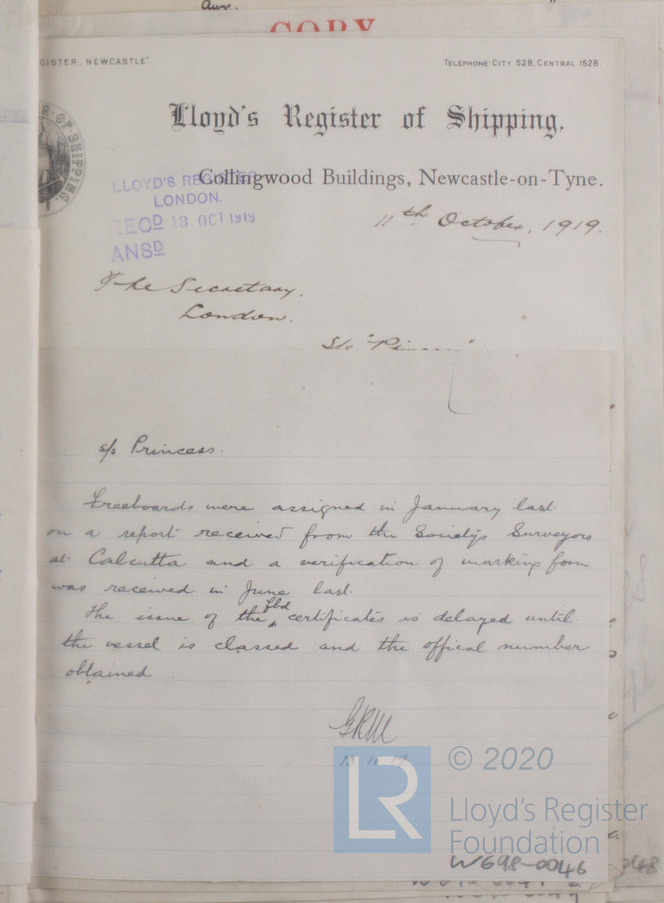 COPY
GISTER, NEWCASTLE"
TELEPHONE: CITY 528, CENTRAL 1528.
Lloyd's Register of Shipping,
Collingwood Buildings, Newcastle-on-Tyne.
OF·SHIPPING
LLOYD'S REGISTER
LONDON.
RECD 13 OCT 1919
ANSD
11th October, 1919.
The Secretary,
London.
s/s Princess.
Freeboards were assigned in January last
on a report received from the Society's Surveyors
at Calcutta and a verification of marking form
was received in June last.
The issue of the fbd certificates is delayed until
the vessel is classed and the offical number
obtained
13.10.19
LR
© 2020
Lloyd's Register
Foundation
W698-0046